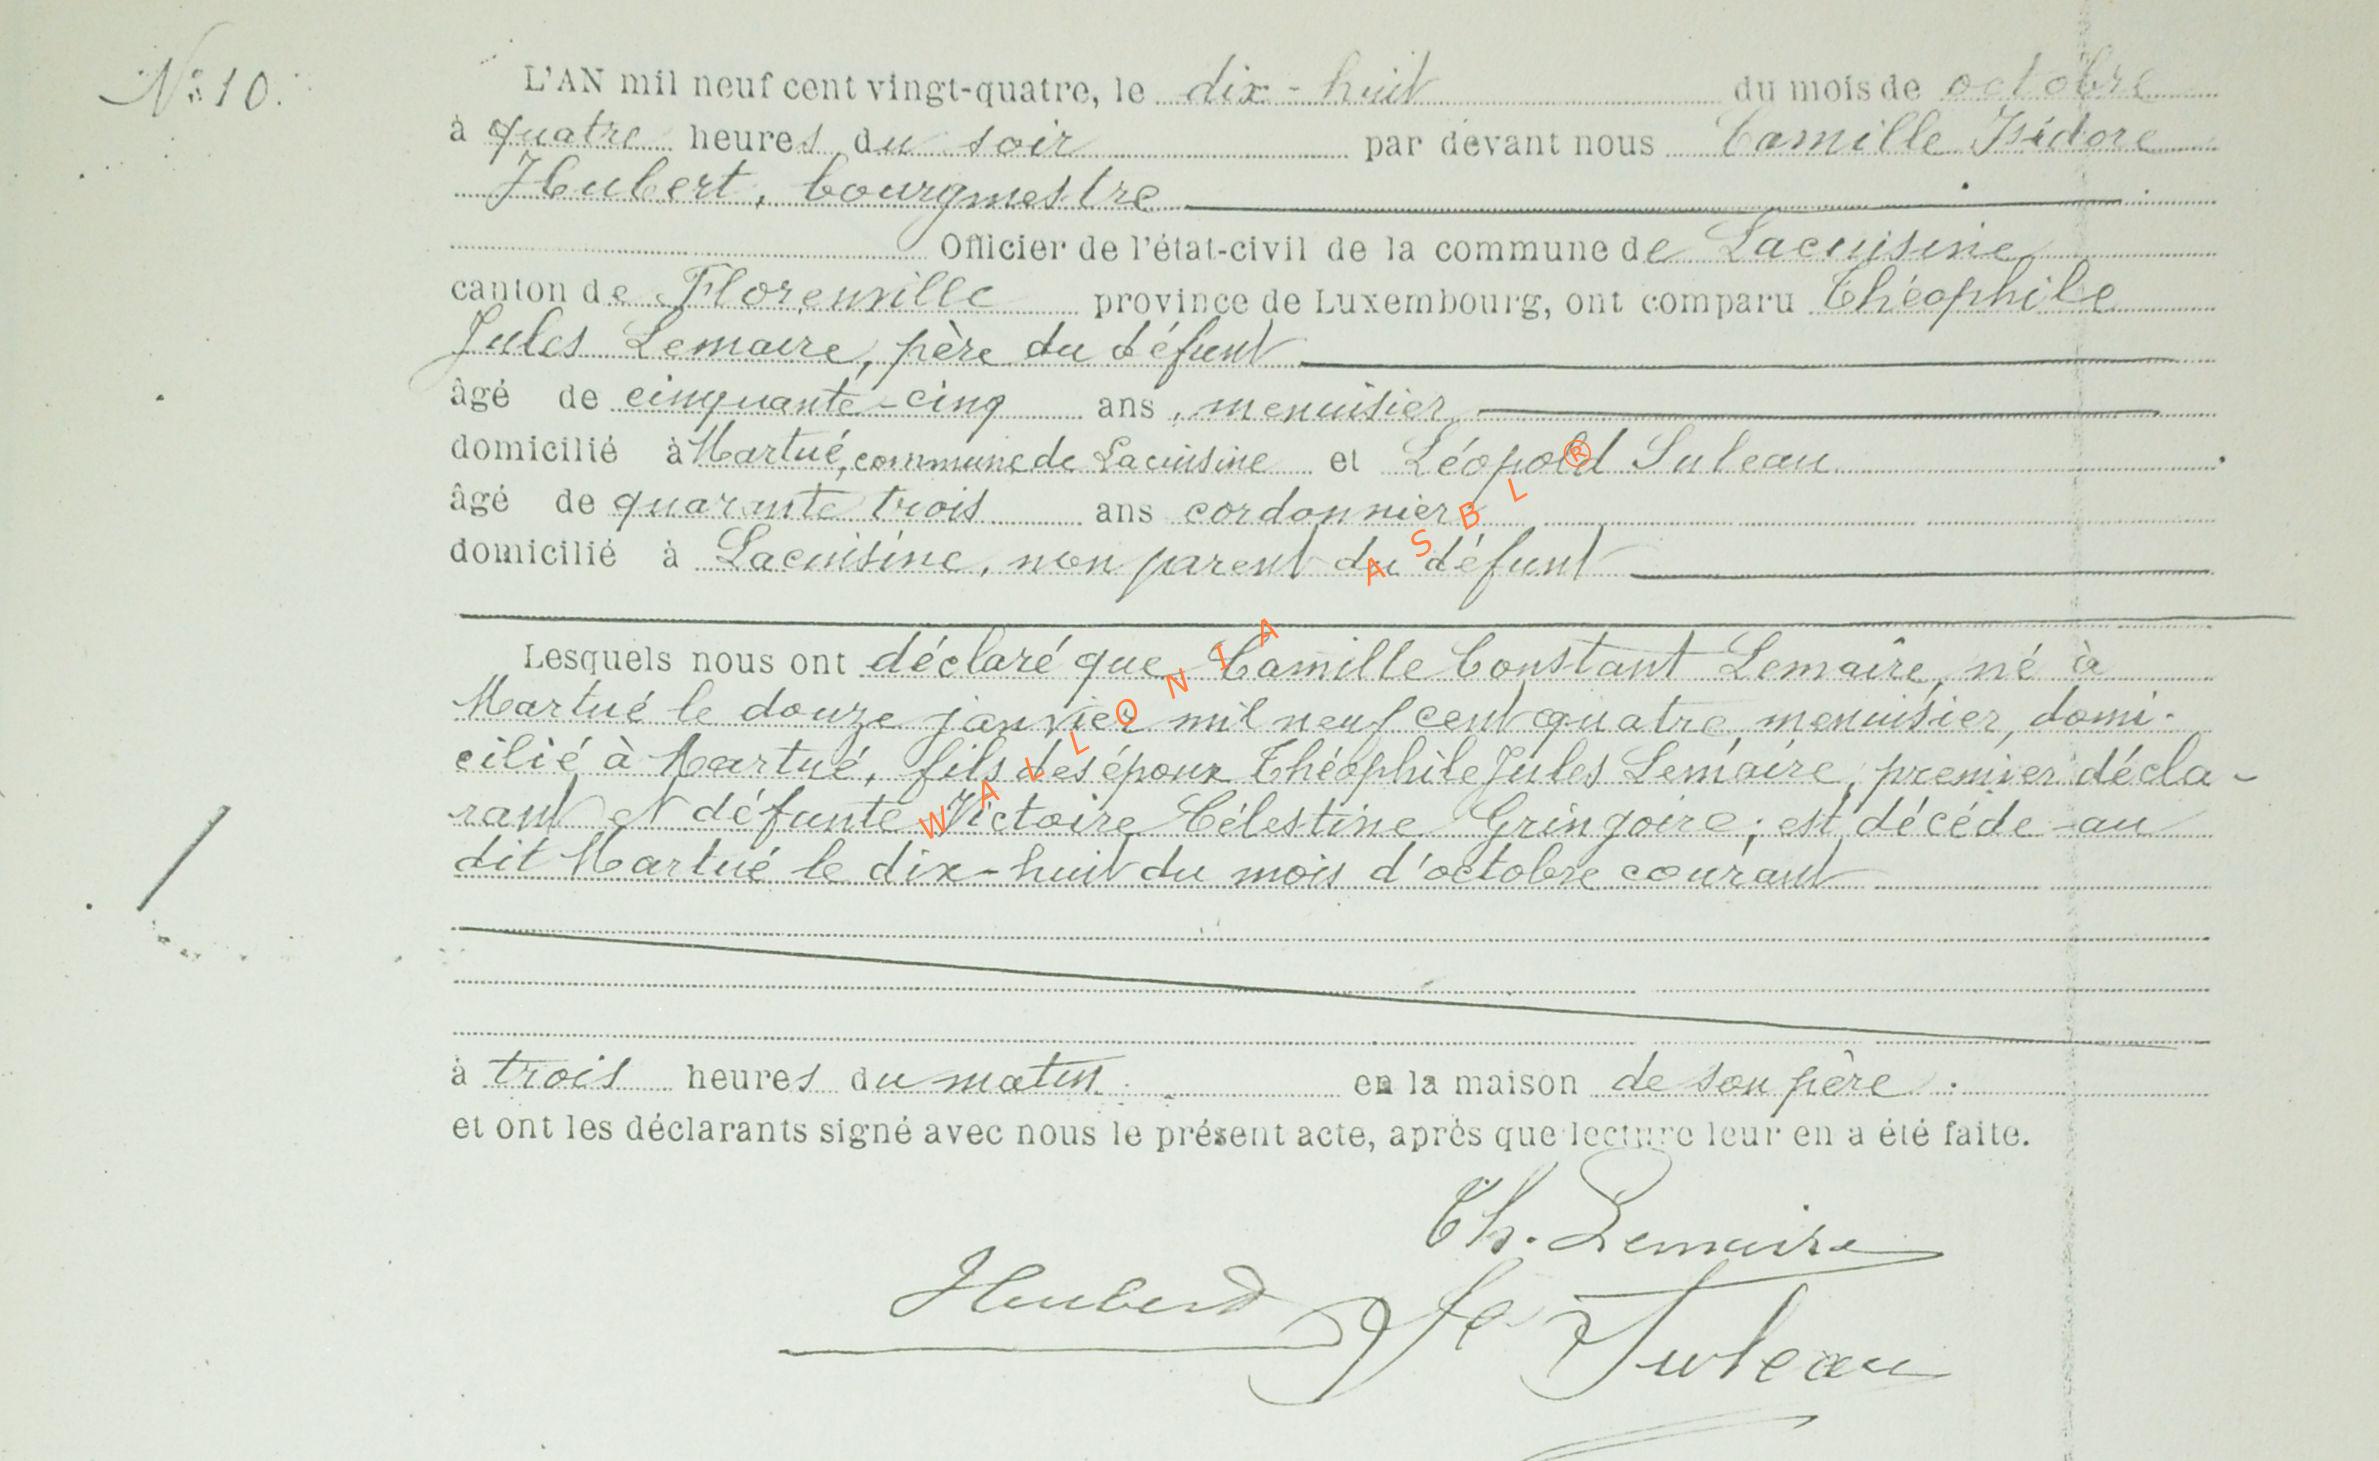 No 10.
L'AN mil neuf cent vingt-quatre, le dix-huit du mois de octobre
à quatre heures du soir par devant nous Camille Isidore
Hubert, bourgmestre
Officier de l'état-civil de la commune de Lacuisine
canton de Florenville province de Luxembourg, ont comparu Théophile
Jules Lemaire, père du défunt
âgé de cinquante-cinq ans, menuisier
domicilié à Martué, commune de Lacuisine et Léopold Suleau
âgé de quarante trois ans cordonnier
domicilié à Lacuisine, non parent du défunt
Lesquels nous ont déclaré que Camille Constant Lemaire, né à
Martué le douze janvier mil neuf cent quatre, menuisier, domi-
cilié à Martué, fils des époux Théophile Jules Lemaire, premier décla-
rant et défunte Victoire Célestine Gringoire; est décédé au
dit Martué le dix-huit du mois d'octobre courant
à trois heures du matin en la maison de son père.
et ont les déclarants signé avec nous le présent acte, après que lecture leur en a été faite.
Th. Lemaire
Hubert Suleau
WALLONIA ASBL ®